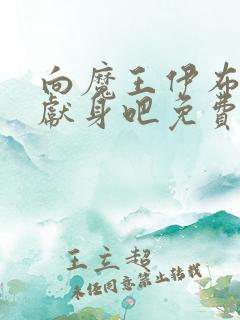 向魔王伊布
獻身吧免費
王立超
未經同意禁止轉載